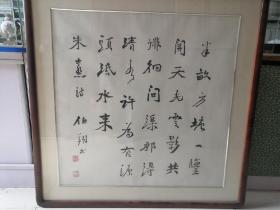 半畝方塘一鑒
開天光雲影共
徘徊問渠那得
清如許為有源
頭活水來
朱熹詩 伯翔书